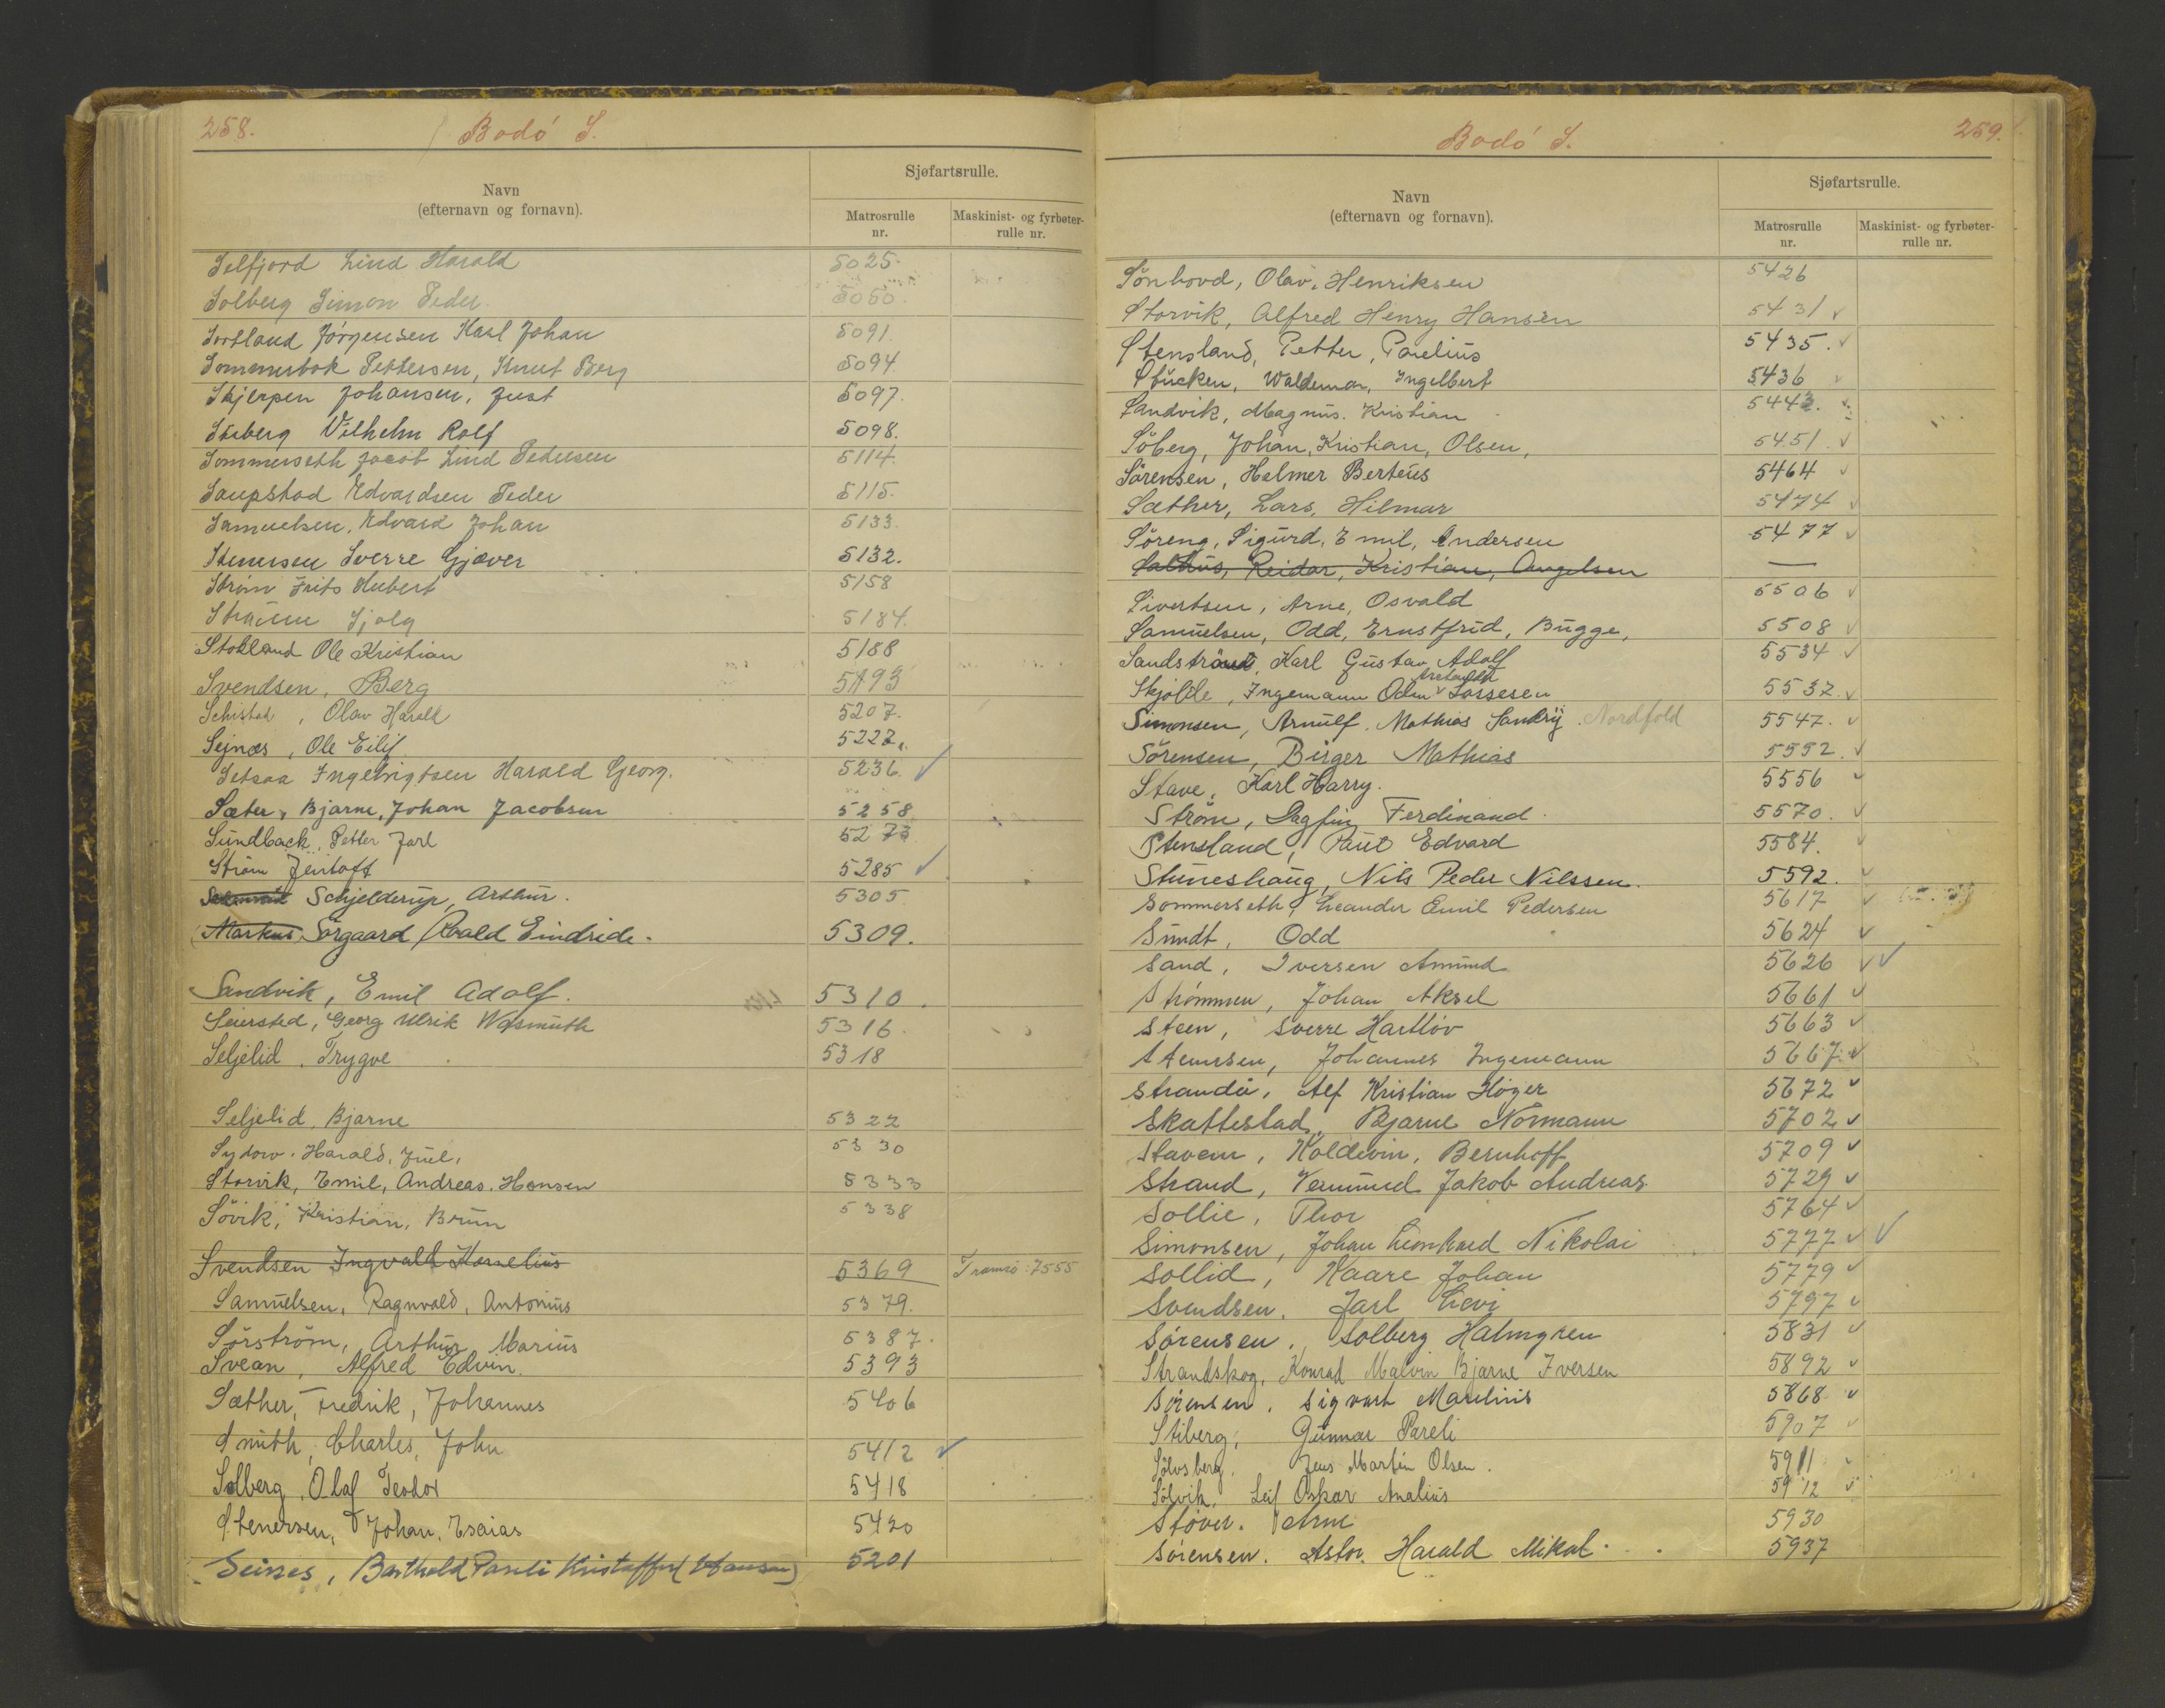 258.
Bodó S.
Navn
(efternavn og fornavn).
Sjøfartsrulle.
Matrosrulle nr.
Maskinist- og fyrbøter-rulle nr.
Selfjord Lind Harald 5025.
Solberg Simon Peder. 5050.
Sortland Jørgensen Karl Johan 5091.
Sommerbak Pettersen, Knut Berg 5094
Skjerpen Johansen, Just 5097.
Vilhelm Rolf 5098.
Sommerseth Jacob Lind Pedersen 5114.
Saupstad Edvardsen Peder 5115.
Samuelsen, Edvard Johan 5133.
Stenersen Sverre Gjæver 5132.
Strøm Frits Hubert 5158
Sjolg 5184.
Stokland Ole Kristian 5188
Svendsen, Berg 5193
Schistad, Olav Harald 5207.
Sejnæs, Ole Eilif 5227.
Setsaa Ingebrigtsen Harald Georg. 5236. ✓
Sæter, Bjarne, Johan Jacobsen 5258
Sundback, Petter Jarl 5273
Strøm Jentoft 5285 ✓
Schjelderup, Arthur. 5305
Markus, Sørgaard Roald Eindride. 5309.
Sandvik, Emil Adolf. 5310.
Seiersted, Georg Ulrik Wasmuth 5316.
Seljelid, Trygve 5318
Seljelid, Bjarne 5322
Sydow. Harald, Juel, 5330
Storvik, Emil, Andreas. Hansen 5333
Søvik, Kristian, Brun 5338
Svendsen Ingvald Kornelius 5369 Tromsø: 7555
Samuelsen, Ragnvald, Antonius 5379.
Sørstrøm, Arthur Marius 5387.
Svean, Alfred Edvin. 5393
Sæther, Fredrik, Johannes 5406
Smith, Charles, John 5412 ✓
Solberg, Olaf Teodor 5418
Stenersen, Johan, Esaias 5420
Seines, Barthold Pareli Kristoffer (Hansen) 5201
259.
Bodó S.
Navn
(efternavn og fornavn).
Sjøfartsrulle.
Matrosrulle nr.
Maskinist- og fyrbøter-rulle nr.
Sønhovd, Olav, Henriksen 5426
Storvik, Alfred Henry Hansen 5431 ✓
Stensland, Petter, Parelius 5435. ✓
Stucken, Waldemar, Ingelbert 5436 ✓
Sandvik, Magnus. Kristian 5443. ✓
Søberg, Johan, Kristian, Olsen, 5451. ✓
Sørensen, Helmer Berteus 5464 ✓
Sæther, Lars, Hilmar 5474 ✓
Søreng, Sigurd, Emil, Andersen 5477 ✓
Salthus, Reidar, Kristian, Angelsen —
Sivertsen, Arne, Osvald 5506 ✓
Samuelsen, Odd, Ernstfrid, Bugge, 5508 ✓
Karl Gustav Adolf 5534 ✓
Skjolde, Ingemann Odin Lossesen 5537. ✓
Simonsen, Arnulf. Mathias Sandrij. Nordfold 5547. ✓
Sørensen, Birger Mathias 5552. ✓
Stave, Karl Harry. 5556 ✓
Strøm, Dagfin Ferdinand. 5570. ✓
Stensland, Paul Edvard 5584. ✓
Stuneshaug, Nils Peder Nilssen. 5592. ✓
Sommerseth, Leander Emil Pedersen 5617 ✓
Sundt, Odd 5624 ✓
Sand, Iversen Amund 5626 ✓✓
Strømmen, Johan Aksel 5661 ✓
Steen, Sverre Hartløv 5663 ✓
Stenersen, Johannes Ingemann 5667. ✓
Strandå, Alf Kristian Høger 5672 ✓
Skattestad, Bjarne Normann 5702 ✓
Stavem, Koldevin, Bernhoff 5709 ✓
Strand, Vermund Jakob Andreas 5729 ✓
Sollie, Thor 5764 ✓
Simonsen, Johan Leonhard Nikolai 5777 ✓ ✓
Sollid, Kaare Johan 5779 ✓
Svendsen, Jarl Levi 5797 ✓
Sørensen, Solberg Halmgren 5831 ✓
Strandskog, Konrad Malvin Bjarne Iversen 5892 ✓
Sørensen, Sigvart Marelius 5868. ✓
Stiberg, Gunnar Pareli 5907 ✓
Sølvsberg, Jens Martin Olsen. 5911 ✓
Sølvik, Leif Oskar Analius 5912 ✓
Støver. Arne 5930
Sørensen. Astor. Harald Mikal. 5937